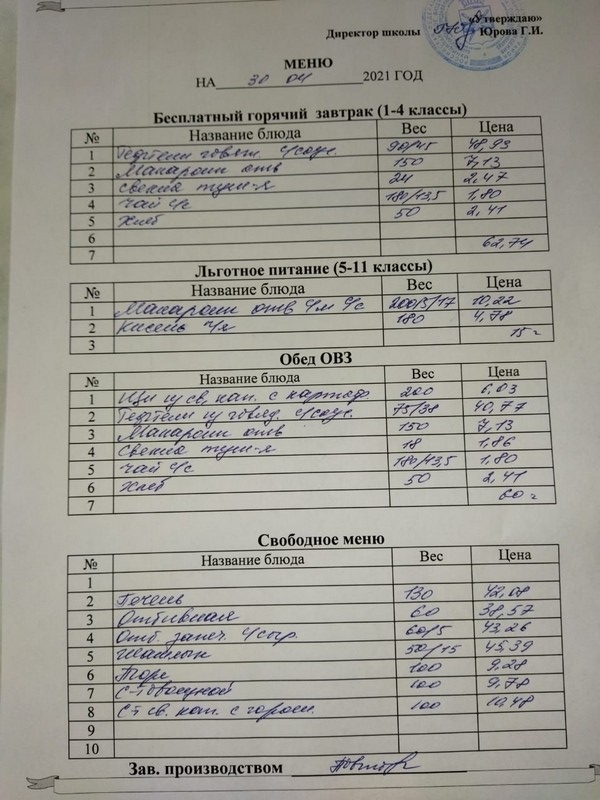 «Утверждаю»
Директор школы Юрова Г.И.
МЕНЮ
НА 30 04 2021 ГОД
Бесплатный горячий завтрак (1-4 классы)
№ Название блюда Вес Цена
1 Тефтели говяж. с/соус. 90/45 48,93
2 Макарон отв 150 7,13
3 Свекла туш-я 24 2,47
4 Чай с/с 180/13,5 1,80
5 Хлеб 50 2,41
6
7 62,74
Льготное питание (5-11 классы)
№ Название блюда Вес Цена
1 Макарон отв с/м с/с 200/5/17 10,22
2 Кисель ч/я 180 4,78
3 15=
Обед ОВЗ
№ Название блюда Вес Цена
1 Щи из св. кап. с картоф. 200 6,03
2 Тефтели из говяд. с/соус. 75/38 40,77
3 Макарон отв 150 7,13
4 Свекла туш-я 18 1,86
5 Чай с/с 180/13,5 1,80
6 Хлеб 50 2,41
7 60=
Свободное меню
№ Название блюда Вес Цена
1
2 Печень 130 42,08
3 Отбивная 60 38,57
4 Отб. запеч. с/сыр. 60/5 43,26
5 Шашлык 50/15 45,39
6 100 9,28
7 100 9,78
8 С-т св. кап. с горош. 100 10,48
9
10
Зав. производством